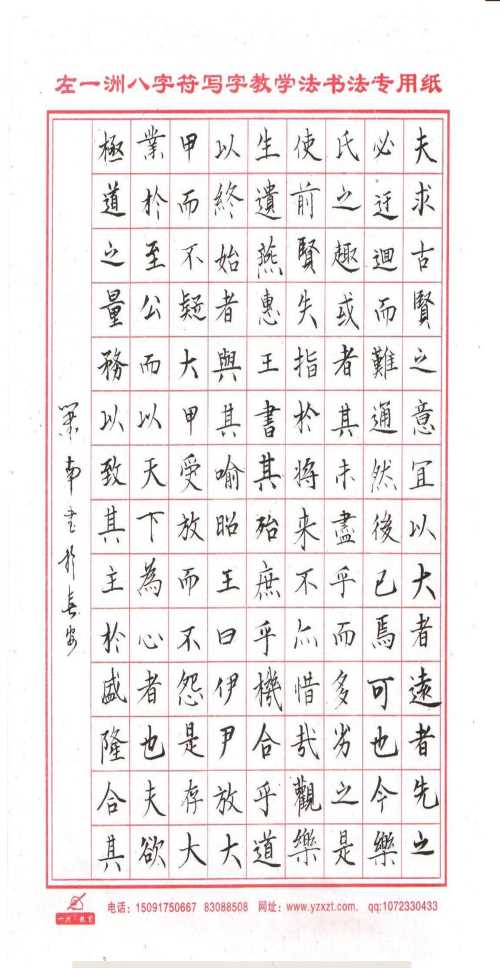 左一洲八字符写字教学法书法专用纸
夫求古賢之意宜以大者遠者先之
必迂迴而難通然後已焉可也今樂
氏之趣或者其未盡乎而多劣之是
使前賢失指於將来不亦惜哉觀樂
生遺燕惠王書其殆庶乎機合乎道
以終始者與其喻昭王曰伊尹放大
甲而不疑大甲受放而不怨是存大
業於至公而以天下為心者也夫欲
極道之量務以致其主於盛隆合其
南书於長安
电话：15091750667 83088508 网址：www.yzxzt.com. qq:1072330433